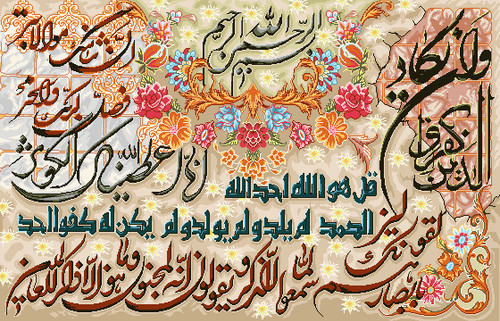 بسم الله الرحمن الرحيم
وان يكاد
الذين كفروا
ليزلقونك
بابصارهم
لما سمعوا الذكر ويقولون انه لمجنون وما هو الا ذكر للعالمين
قل هو الله احد الله
الصمد لم يلد ولم يولد ولم يكن له كفوا احد
انا اعطيناك الكوثر
فصل لربك وانحر
ان شانئك هو الابتر